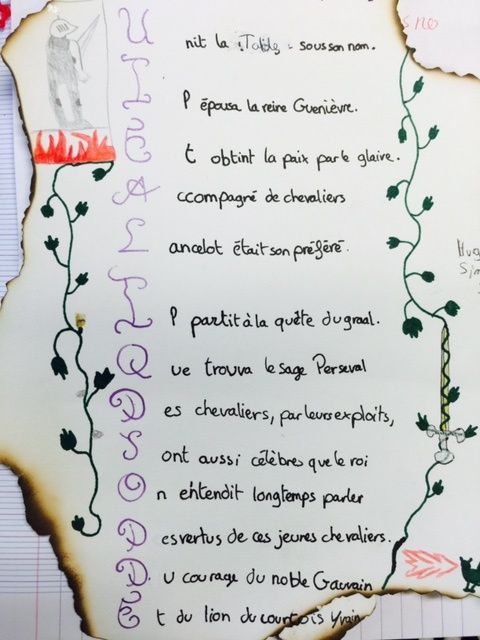 Unit la Table sous son nom.
Il épousa la reine Guenièvre.
Et obtint la paix par le glaive.
Accompagné de chevaliers
Lancelot était son préféré.
Il partit à la quête du graal.
Que trouva le sage Perseval
Des chevaliers, par leurs exploits,
Sont aussi célèbres que le roi
On entendit longtemps parler
Des vertus de ces jeunes chevaliers.
Du courage du noble Gauvain
Et du lion du courtois Yvain